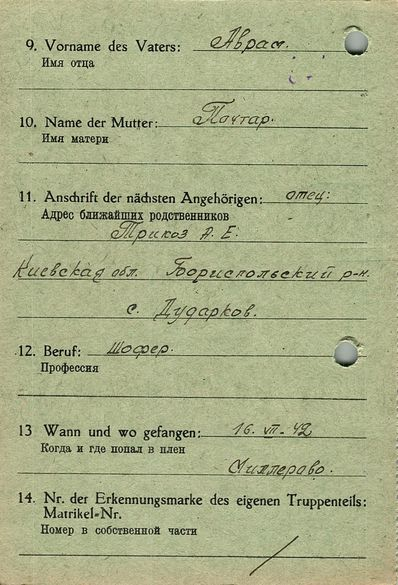 9. Vorname des Vaters: Аврам.
Имя отца
10. Name der Mutter: Почтар.
Имя матери
11. Anschrift der nächsten Angehörigen: отец:
Адрес ближайших родственников
Трикоз А. Е.
Киевская обл. Бориспольский р-н.
с. Дударков.
12. Beruf: Шофер.
Профессия
13 Wann und wo gefangen: 16. VII-42
Когда и где попал в плен
Миллерово.
14. Nr. der Erkennungsmarke des eigenen Truppenteils:
Matrikel-Nr.
Номер в собственной части